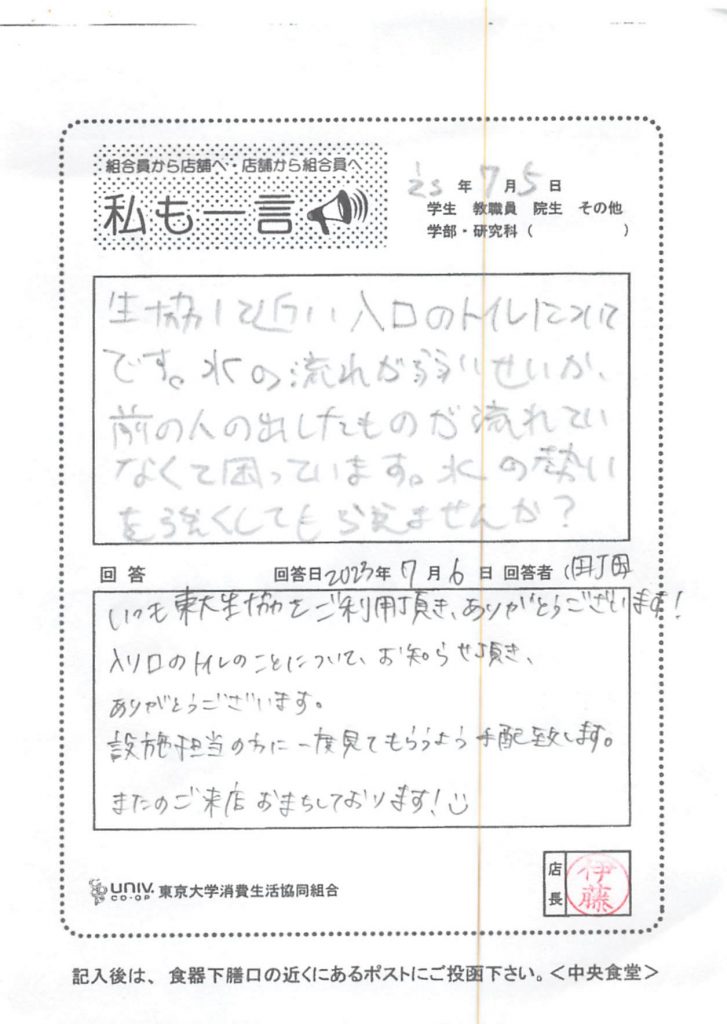 組合員から店舗へ・店舗から組合員へ
私も一言
'23年7月5日
学生 教職員 院生 その他
学部・研究科( )
生協に近い入口のトイレについて
です。水の流れが弱いせいか、
前の人の出したものが流れてい
なくて困っています。水の勢い
を強くしてもらえませんか?
回答 回答日2023年7月6日 回答者 山田
いつも東大生協をご利用頂き、ありがとうございます!
入り口のトイレのことについて、お知らせ頂き、
ありがとうございます。
設施担当の方に一度見てもらうよう手配致します。
またのご来店おまちしております!
UNIV. CO-OP 東京大学消費生活協同組合
店長 伊藤
記入後は、食器下膳口の近くにあるポストにご投函下さい。<中央食堂>